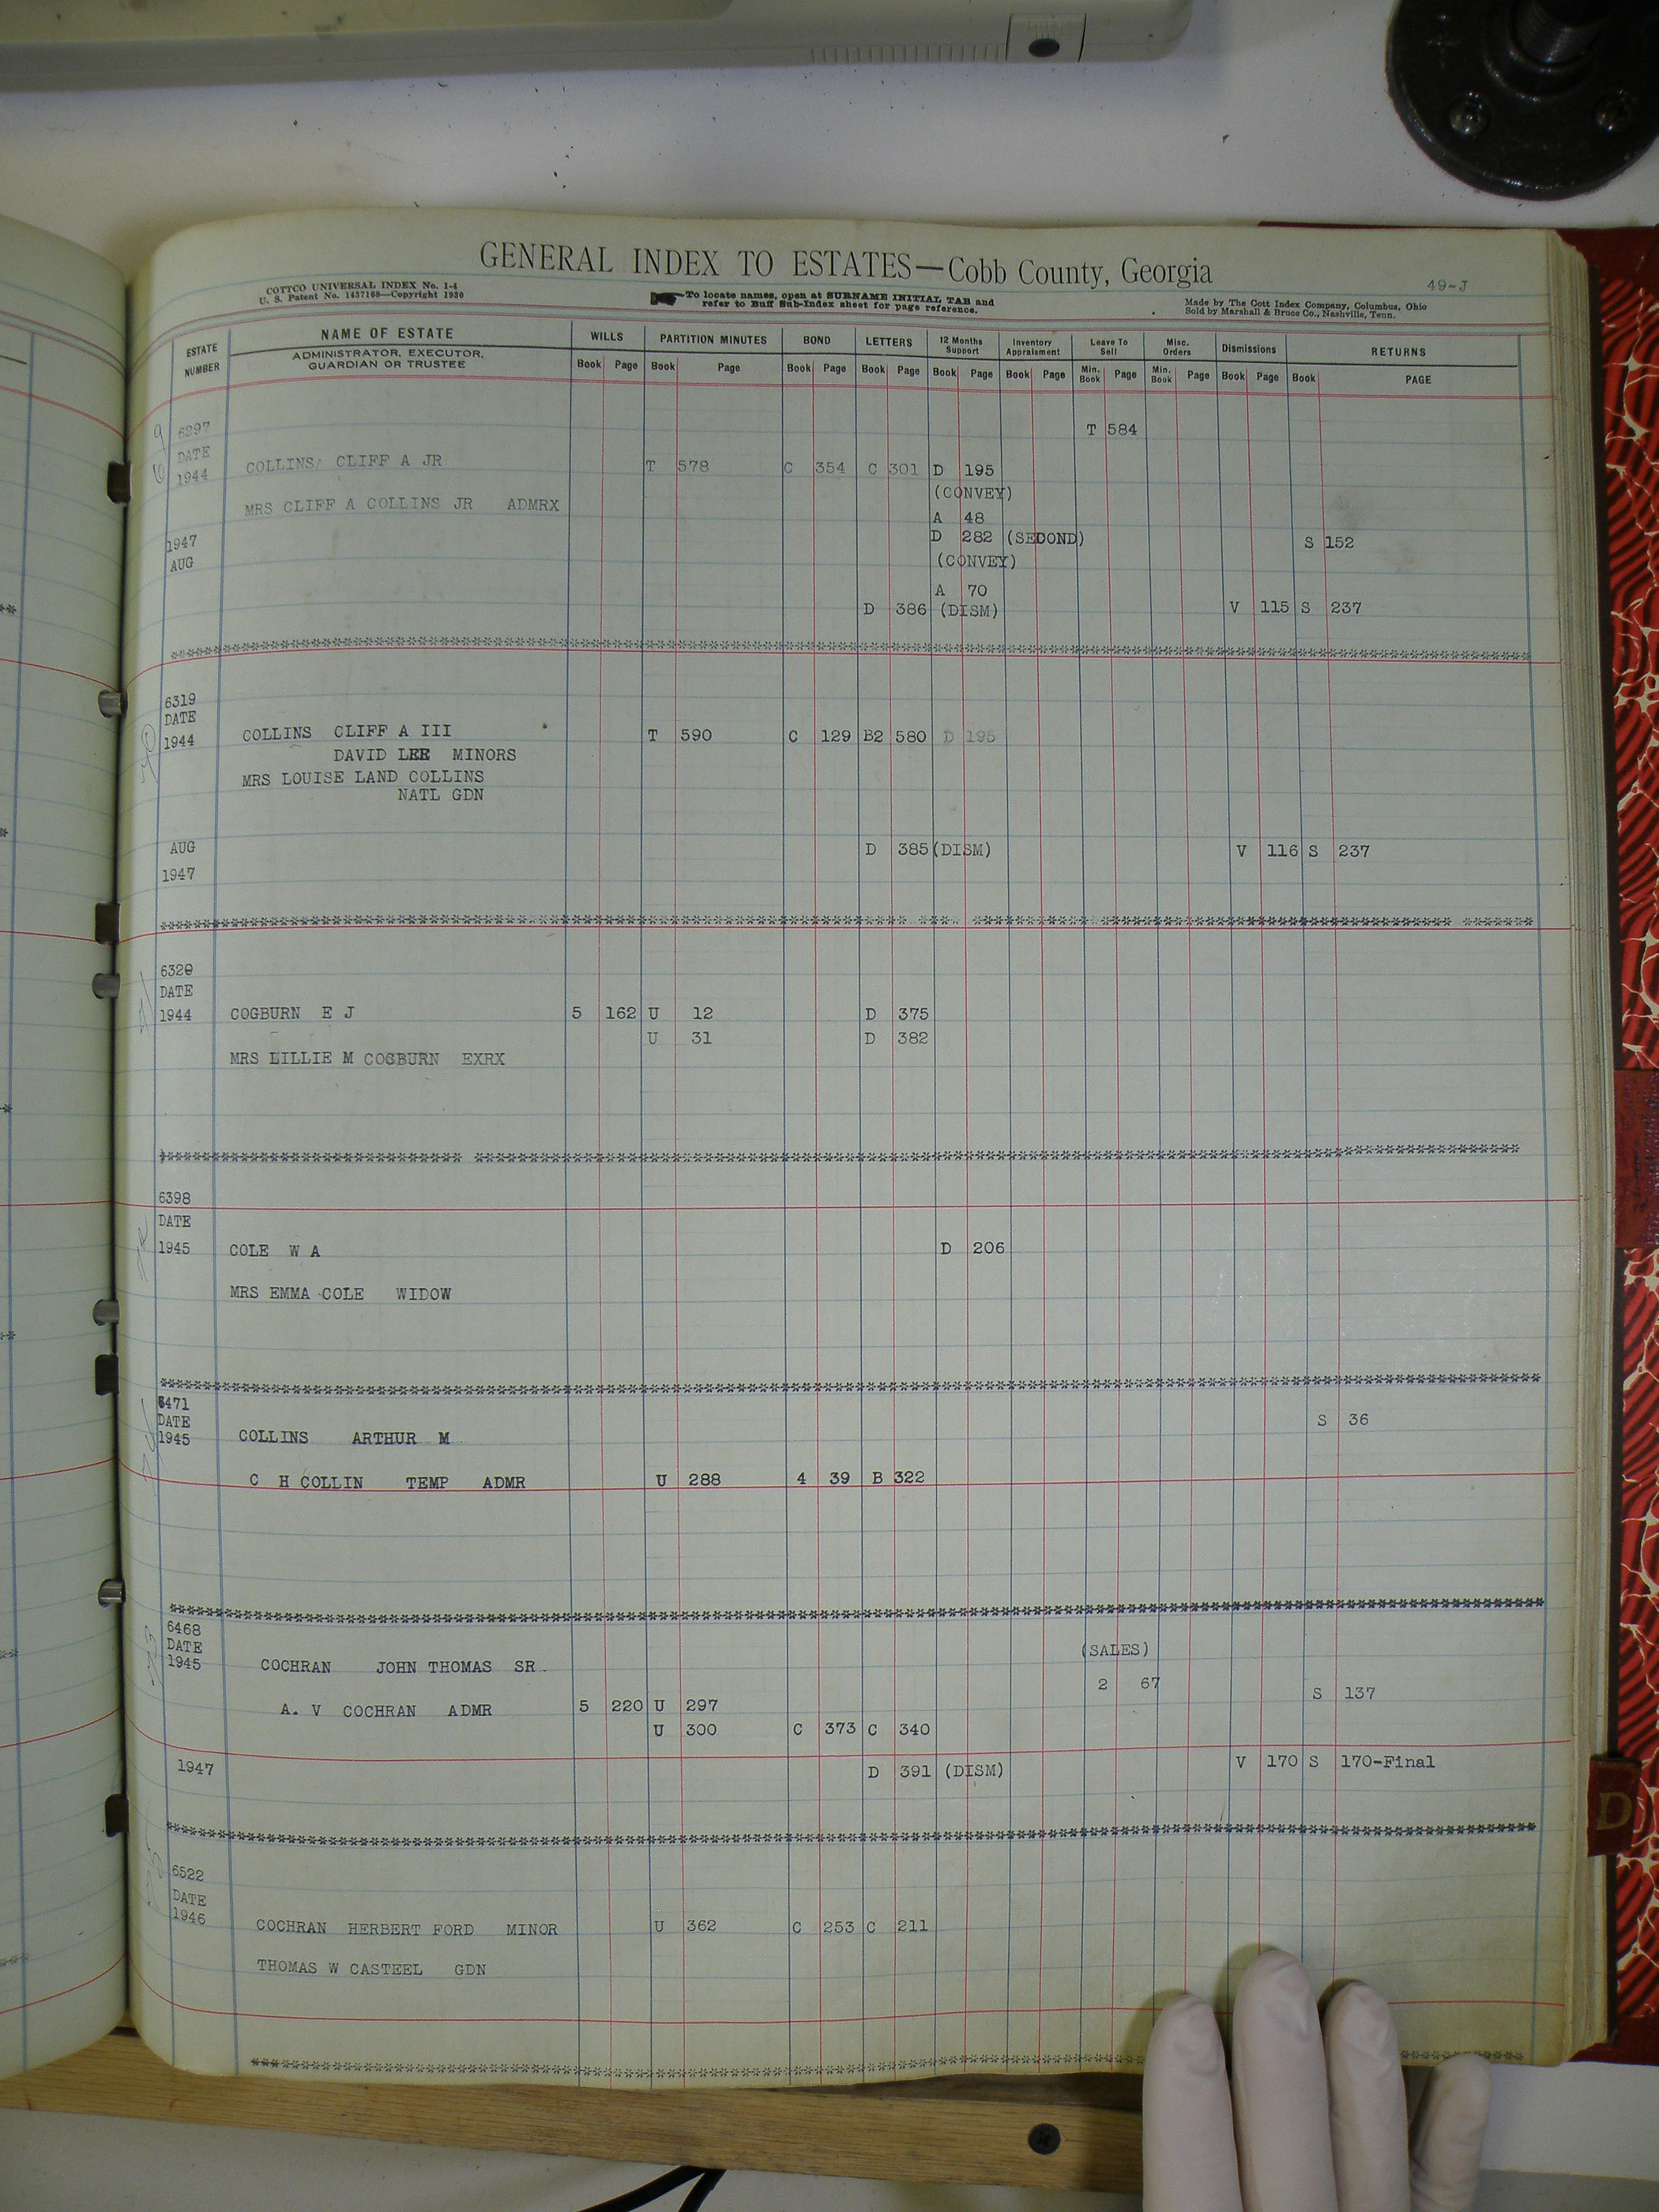 GENERAL INDEX TO ESTATES—Cobb County, Georgia
49-J
COTTCO UNIVERSAL INDEX No. 1-4
U. S. Patent No. 1437168—Copyright 1930
To locate names, open at SURNAME INITIAL TAB and
refer to Buff Sub-Index sheet for page reference.
Made by The Cott Index Company, Columbus, Ohio
Sold by Marshall & Bruce Co., Nashville, Tenn.
ESTATE NUMBER
NAME OF ESTATE
ADMINISTRATOR, EXECUTOR,
GUARDIAN OR TRUSTEE
WILLS PARTITION MINUTES BOND LETTERS 12 Months Support Inventory Appraisment Leave To Sell Misc. Orders Dismissions RETURNS
Book Page Book Page Book Page Book Page Book Page Book Page Min. Book Page Min. Book Page Book Page Book PAGE
6297 T 584
DATE
1944 COLLINS CLIFF A JR T 578 C 354 C 301 D 195
(CONVEY)
MRS CLIFF A COLLINS JR ADMRX
A 48
1947 D 282 (SEDOND) S 152
AUG (CONVEY)
A 70
D 386 (DISM) V 115 S 237
6319
DATE
1944 COLLINS CLIFF A III T 590 C 129 B2 580 D 195
DAVID LEE MINORS
MRS LOUISE LAND COLLINS
NATL GDN
AUG D 385 (DISM) V 116 S 237
1947
6320
DATE
1944 COGBURN E J 5 162 U 12 D 375
U 31 D 382
MRS LILLIE M COGBURN EXRX
6398
DATE
1945 COLE W A D 206
MRS EMMA COLE WIDOW
6471
DATE S 36
1945 COLLINS ARTHUR M
C H COLLIN TEMP ADMR U 288 4 39 B 322
6468
DATE (SALES)
1945 COCHRAN JOHN THOMAS SR.
2 67 S 137
A. V COCHRAN ADMR 5 220 U 297
U 300 C 373 C 340
1947 D 391 (DISM) V 170 S 170-Final
6522
DATE
1946 COCHRAN HERBERT FORD MINOR U 362 C 253 C 211
THOMAS W CASTEEL GDN
D